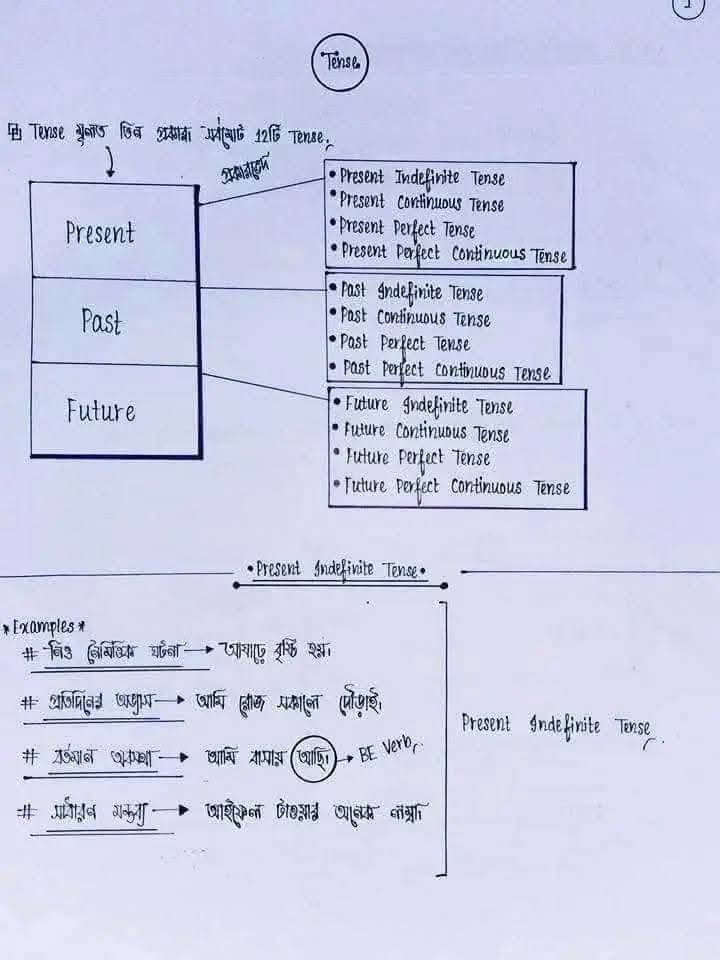 1
Tense
Tense মূলত তিন প্রকার। সর্বমোট 12টি Tense.
প্রকারভেদ
Present
Past
Future
• Present Indefinite Tense
• Present Continuous Tense
• Present Perfect Tense
• Present Perfect Continuous Tense
• Past Indefinite Tense
• Past Continuous Tense
• Past Perfect Tense
• Past Perfect Continuous Tense
• Future Indefinite Tense
• Future Continuous Tense
• Future Perfect Tense
• Future Perfect Continuous Tense
• Present Indefinite Tense •
* Examples *
# নিত্য নৈমিত্তিক ঘটনা → আষাঢ়ে বৃষ্টি হয়।
# প্রতিদিনের অভ্যাস → আমি রোজ সকালে দৌড়াই।
# বর্তমান অবস্থা → আমি বাসায় আছি। → BE Verb.
# সাধারণ মন্তব্য → আইফেল টাওয়ার অনেক লম্বা।
Present Indefinite Tense